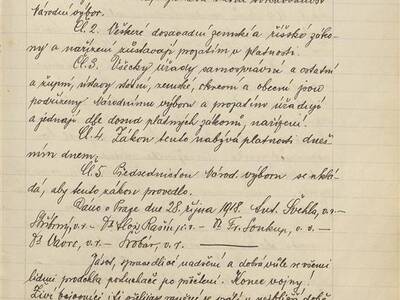 Národní výbor.
Čl. 2. Veškeré dosavadní zemské a říšské záko-
ny a nařízení zůstávají prozatím v platnosti.
Čl. 3. Všecky úřady samosprávné a ostatní
a župní, ústavy státní, zemské, okresní a obecní jsou
podřízeny Národnímu výboru a prozatím úřadují
a jednají dle dosud platných zákonů, nařízení.
Čl. 4. Zákon tento nabývá platnosti dneš-
ním dnem.
Čl. 5. Předsednictvu Národ. výboru se uklá-
dá, aby tento zákon provedlo.
Dáno v Praze dne 28. října 1918. Ant. Švehla, v.r. –
Stříbrný, v.r. – Dr Alois Rašín, v.r. – Dr Fr. Soukup, v.r. –
Dr Vavro, v.r. – Šrobár, v.r.
a dobrá vůle ve všemi
lidmi po přečtení. Konce vojny.